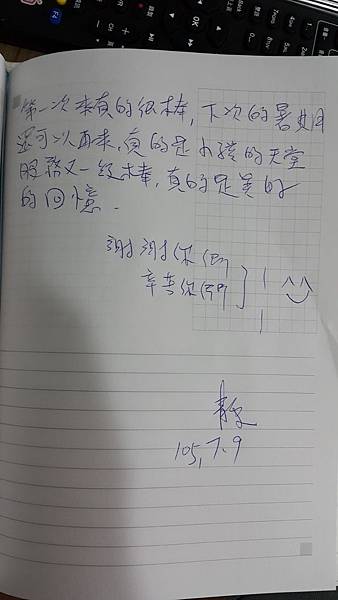 第一次來真的很棒,下次的暑期
還可以再來,真的是小孩的天堂
服務又一級棒,真的是美好
的回憶.
謝謝你們
辛苦你們 ! ^^
105,7.9